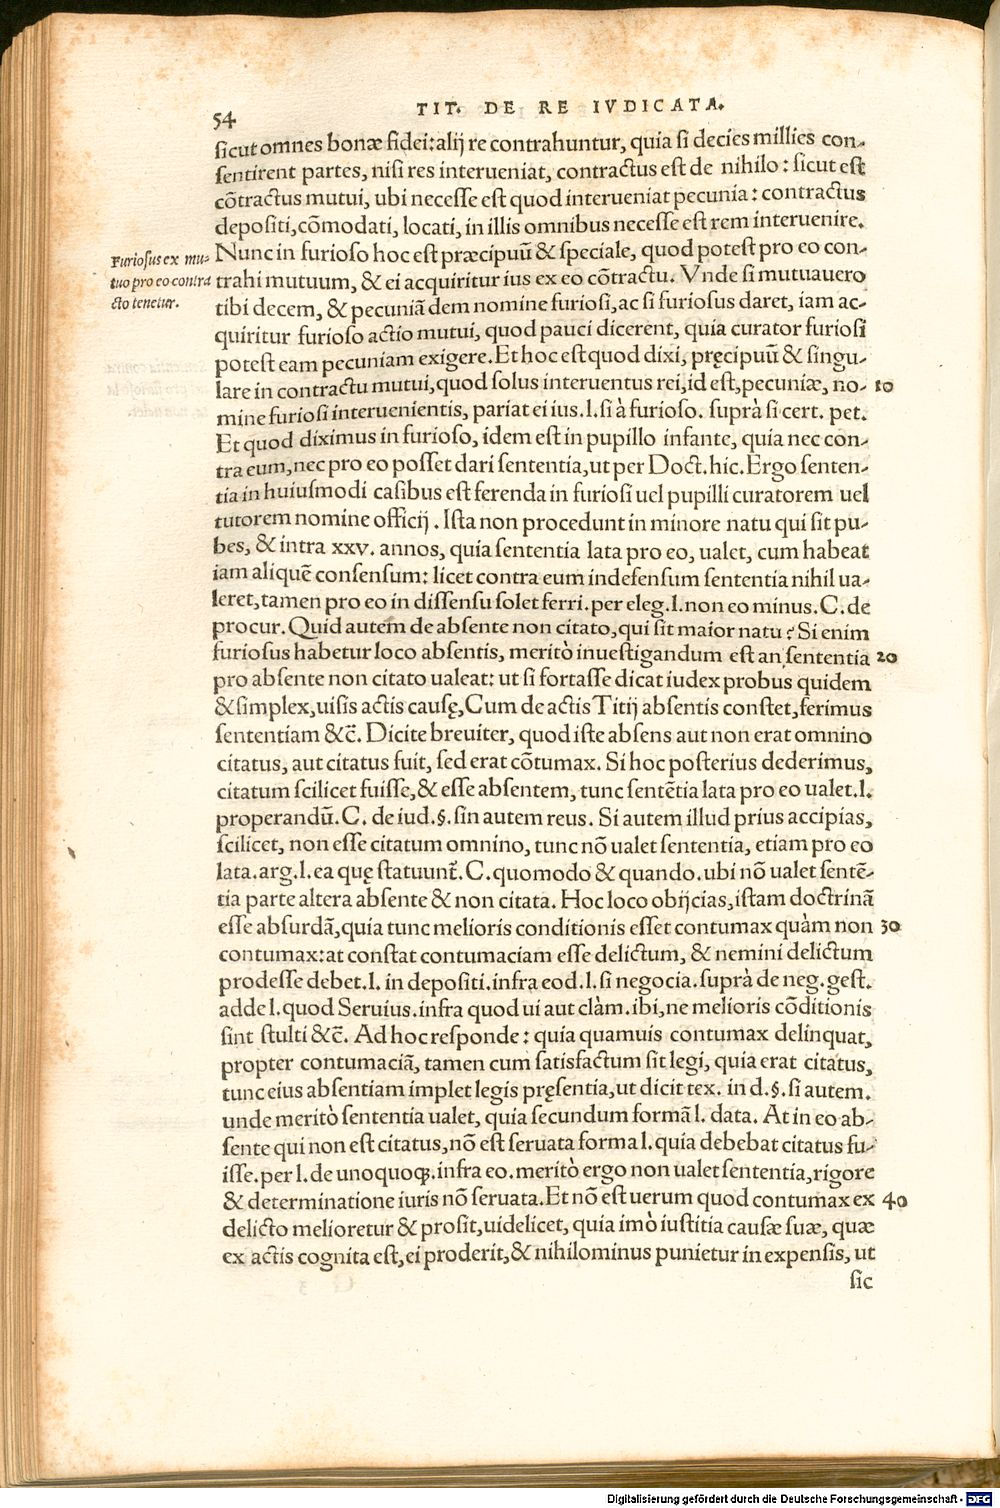 54
TIT. DE RE IVDICATA.
sicut omnes bonæ fidei: alij re contrahuntur, quia si decies millies con-
sentirent partes, nisi res interueniat, contractus est de nihilo: sicut est
cõtractus mutui, ubi necesse est quod interueniat pecunia: contractus
depositi, cõmodati, locati, in illis omnibus necesse est rem interuenire.
Nunc in furioso hoc est præcipuũ & speciale, quod potest pro eo con-
trahi mutuum, & ei acquiritur ius ex eo cõtractu. Vnde si mutuauero
tibi decem, & pecuniã dem nomine furiosi, ac si furiosus daret, iam ac-
quiritur furioso actio mutui, quod pauci dicerent, quia curator furiosi
potest eam pecuniam exigere. Et hoc est quod dixi, pręcipuũ & singu-
lare in contractu mutui, quod solus interuentus rei, id est, pecuniæ, no- 10
mine furiosi interuenientis, pariat ei ius. l. si à furioso. suprà si cert. pet.
Et quod diximus in furioso, idem est in pupillo infante, quia nec con-
tra eum, nec pro eo posset dari sententia, ut per Doct. hic. Ergo senten-
tia in huiusmodi casibus est ferenda in furiosi uel pupilli curatorem uel
tutorem nomine officij. Ista non procedunt in minore natu qui sit pu-
bes, & intra xxv. annos, quia sententia lata pro eo, ualet, cum habeat
iam aliquẽ consensum: licet contra eum indefensum sententia nihil ua-
leret, tamen pro eo in dissensu solet ferri. per eleg. l. non eo minus. C. de
procur. Quid autem de absente non citato, qui sit maior natu? Si enim
furiosus habetur loco absentis, meritò inuestigandum est an sententia 20
pro absente non citato ualeat: ut si fortasse dicat iudex probus quidem
& simplex, uisis actis causę, Cum de actis Titij absentis constet, ferimus
sententiam &c̃. Dicite breuiter, quod iste absens aut non erat omnino
citatus, aut citatus fuit, sed erat cõtumax. Si hoc posterius dederimus,
citatum scilicet fuisse, & esse absentem, tunc sentẽtia lata pro eo ualet. l.
properandũ. C. de iud. §. sin autem reus. Si autem illud prius accipias,
scilicet, non esse citatum omnino, tunc nõ ualet sententia, etiam pro eo
lata. arg. l. ea quę statuunt̃. C. quomodo & quando. ubi nõ ualet sentẽ-
tia parte altera absente & non citata. Hoc loco obijcias, istam doctrinã
esse absurdã, quia tunc melioris conditionis esset contumax quàm non 30
contumax: at constat contumaciam esse delictum, & nemini delictum
prodesse debet. l. in depositi. infra eod. l. si negocia. suprà de neg. gest.
adde l. quod Seruius. infra quod ui aut clàm. ibi, ne melioris cõditionis
sint stulti &c̃. Ad hoc responde: quia quamuis contumax delinquat,
propter contumaciã, tamen cum satisfactum sit legi, quia erat citatus,
tunc eius absentiam implet legis pręsentia, ut dicit tex. in d. §. si autem.
unde meritò sententia ualet, quia secundum formã l. data. At in eo ab-
sente qui non est citatus, nõ est seruata forma l. quia debebat citatus fu-
isse. per l. de unoquoq;. infra eo. meritò ergo non ualet sententia, rigore
& determinatione iuris nõ seruata. Et nõ est uerum quod contumax ex 40
delicto melioretur & prosit, uidelicet, quia imò iustitia causæ suæ, quæ
ex actis cognita est, ei proderit, & nihilominus punietur in expensis, ut
sic
Furiosus ex mu-
tuo pro eo contra
cto tenetur.
Digitalisierung gefördert durch die Deutsche Forschungsgemeinschaft - DFG